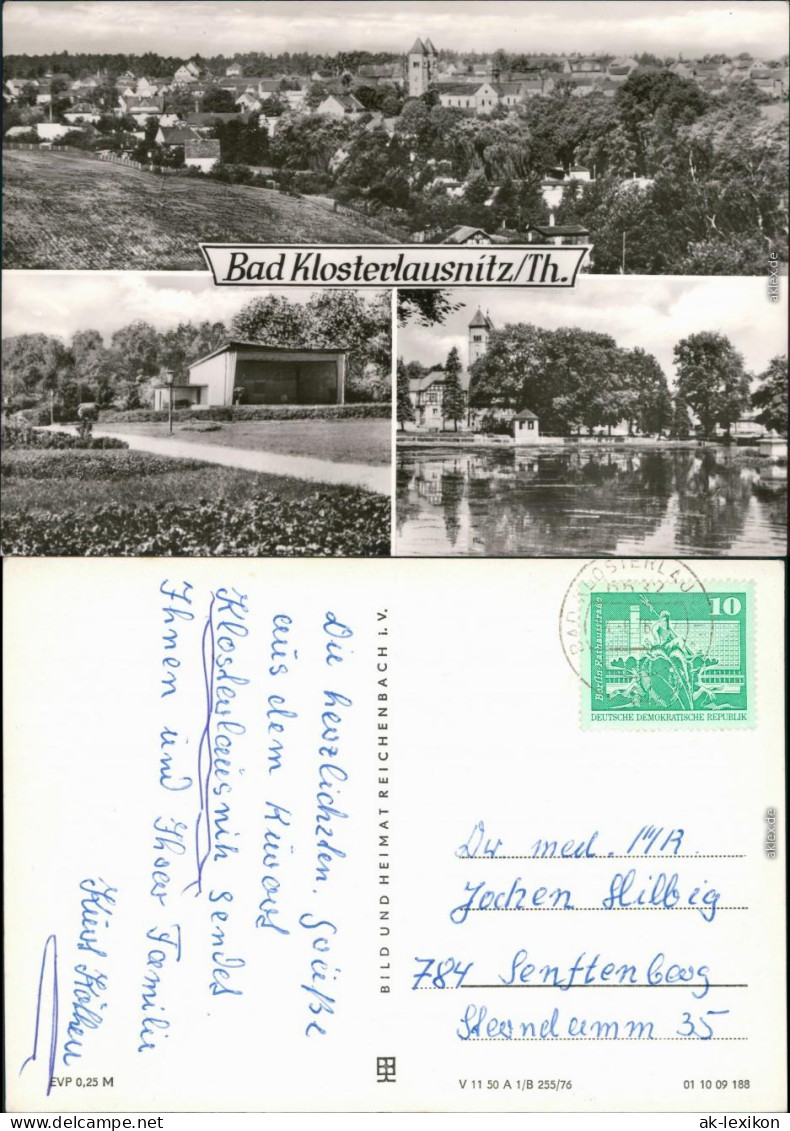 Bad Klosterlausnitz/Th.
aklex.de
Die herzlichsten Grüße
aus dem Kurort
Klosterlausnitz sendet
Ihnen und Ihrer Familie
Kurt Köthen
BILD UND HEIMAT REICHENBACH i. V.
BAD KLOSTERLAU
10
Berlin Rathausstraße
DEUTSCHE DEMOKRATISCHE REPUBLIK
aklex.de
Dr med.
Jochen Hilbig
784 Senftenberg
Sterndamm 35
EVP 0,25 M
V 11 50 A 1/B 255/76
01 10 09 188
www.delcampe.net
ak-lexikon